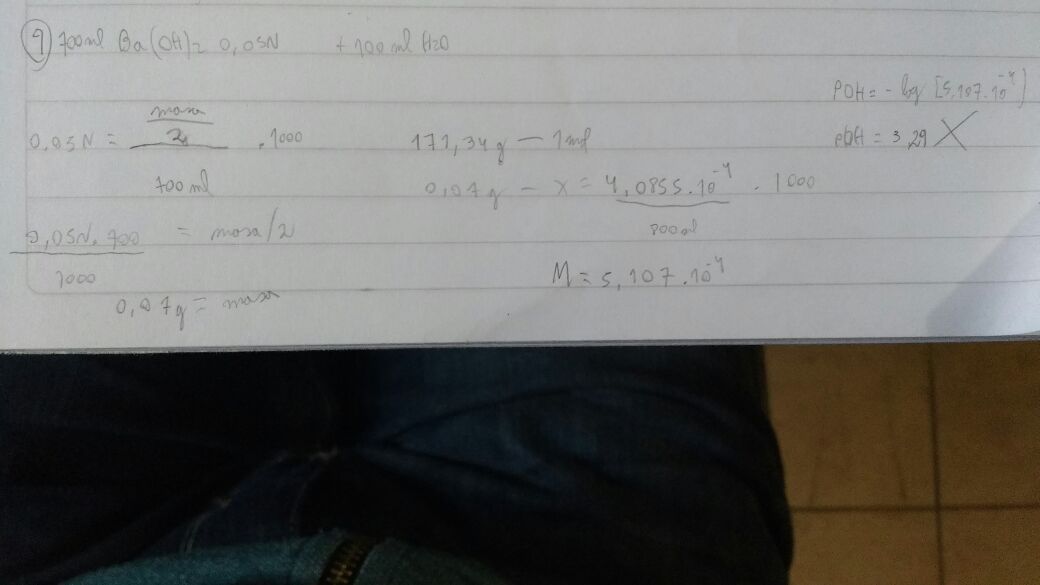 9) 700ml Ba(OH)2 0,05N + 100 ml H2O
POH = - log [5,107.10^-4]
pOH = 3,29 X
0,05N = masa/2 / 700 ml . 1000
171,34g — 1 mol
0,07g — x = 4,0855.10^-4 / 800ml . 1000
0,05N.700 / 1000 = masa/2
M = 5,107.10^-4
0,07g = masa